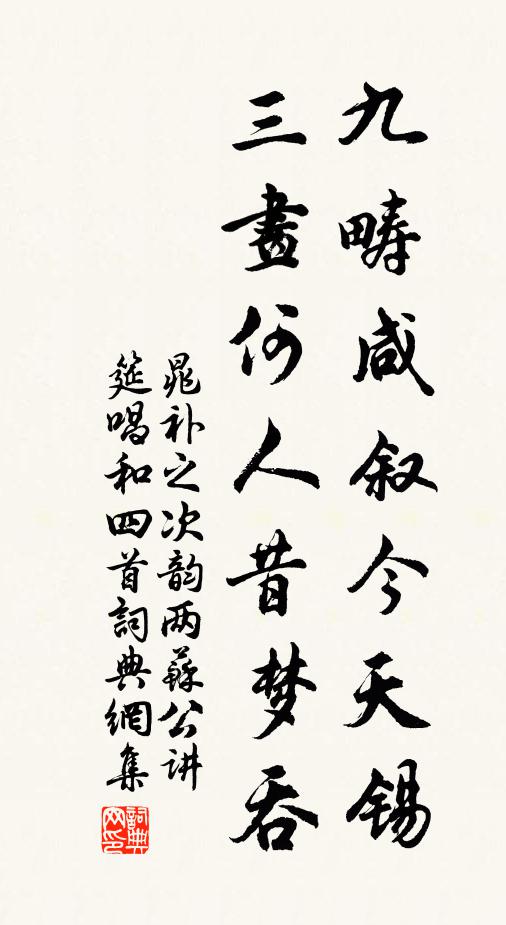 九疇咸叙今天锡
三畫何人昔梦吞
晁补之次韵两蘇公讲
筵唱和四首詞典網集
詞典
网印